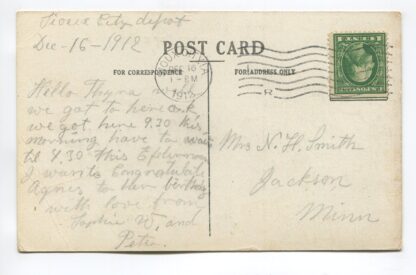 Sioux City depot
Dec-16-1912
POST CARD
FOR CORRESPONDENCE
FOR ADDRESS ONLY
DEC 16
1-PM
1912
Hello Thyra
we got to here ok
we got here 9.30 this
morning have to wait
til 4.30 this
I want to Congratulate
Agnes to her birthday
with love from
Sophie W. and
Pete.
Mrs N. H. Smith
Jackson
Minn